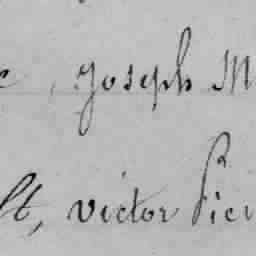 , Joseph M
lt, victor Pier